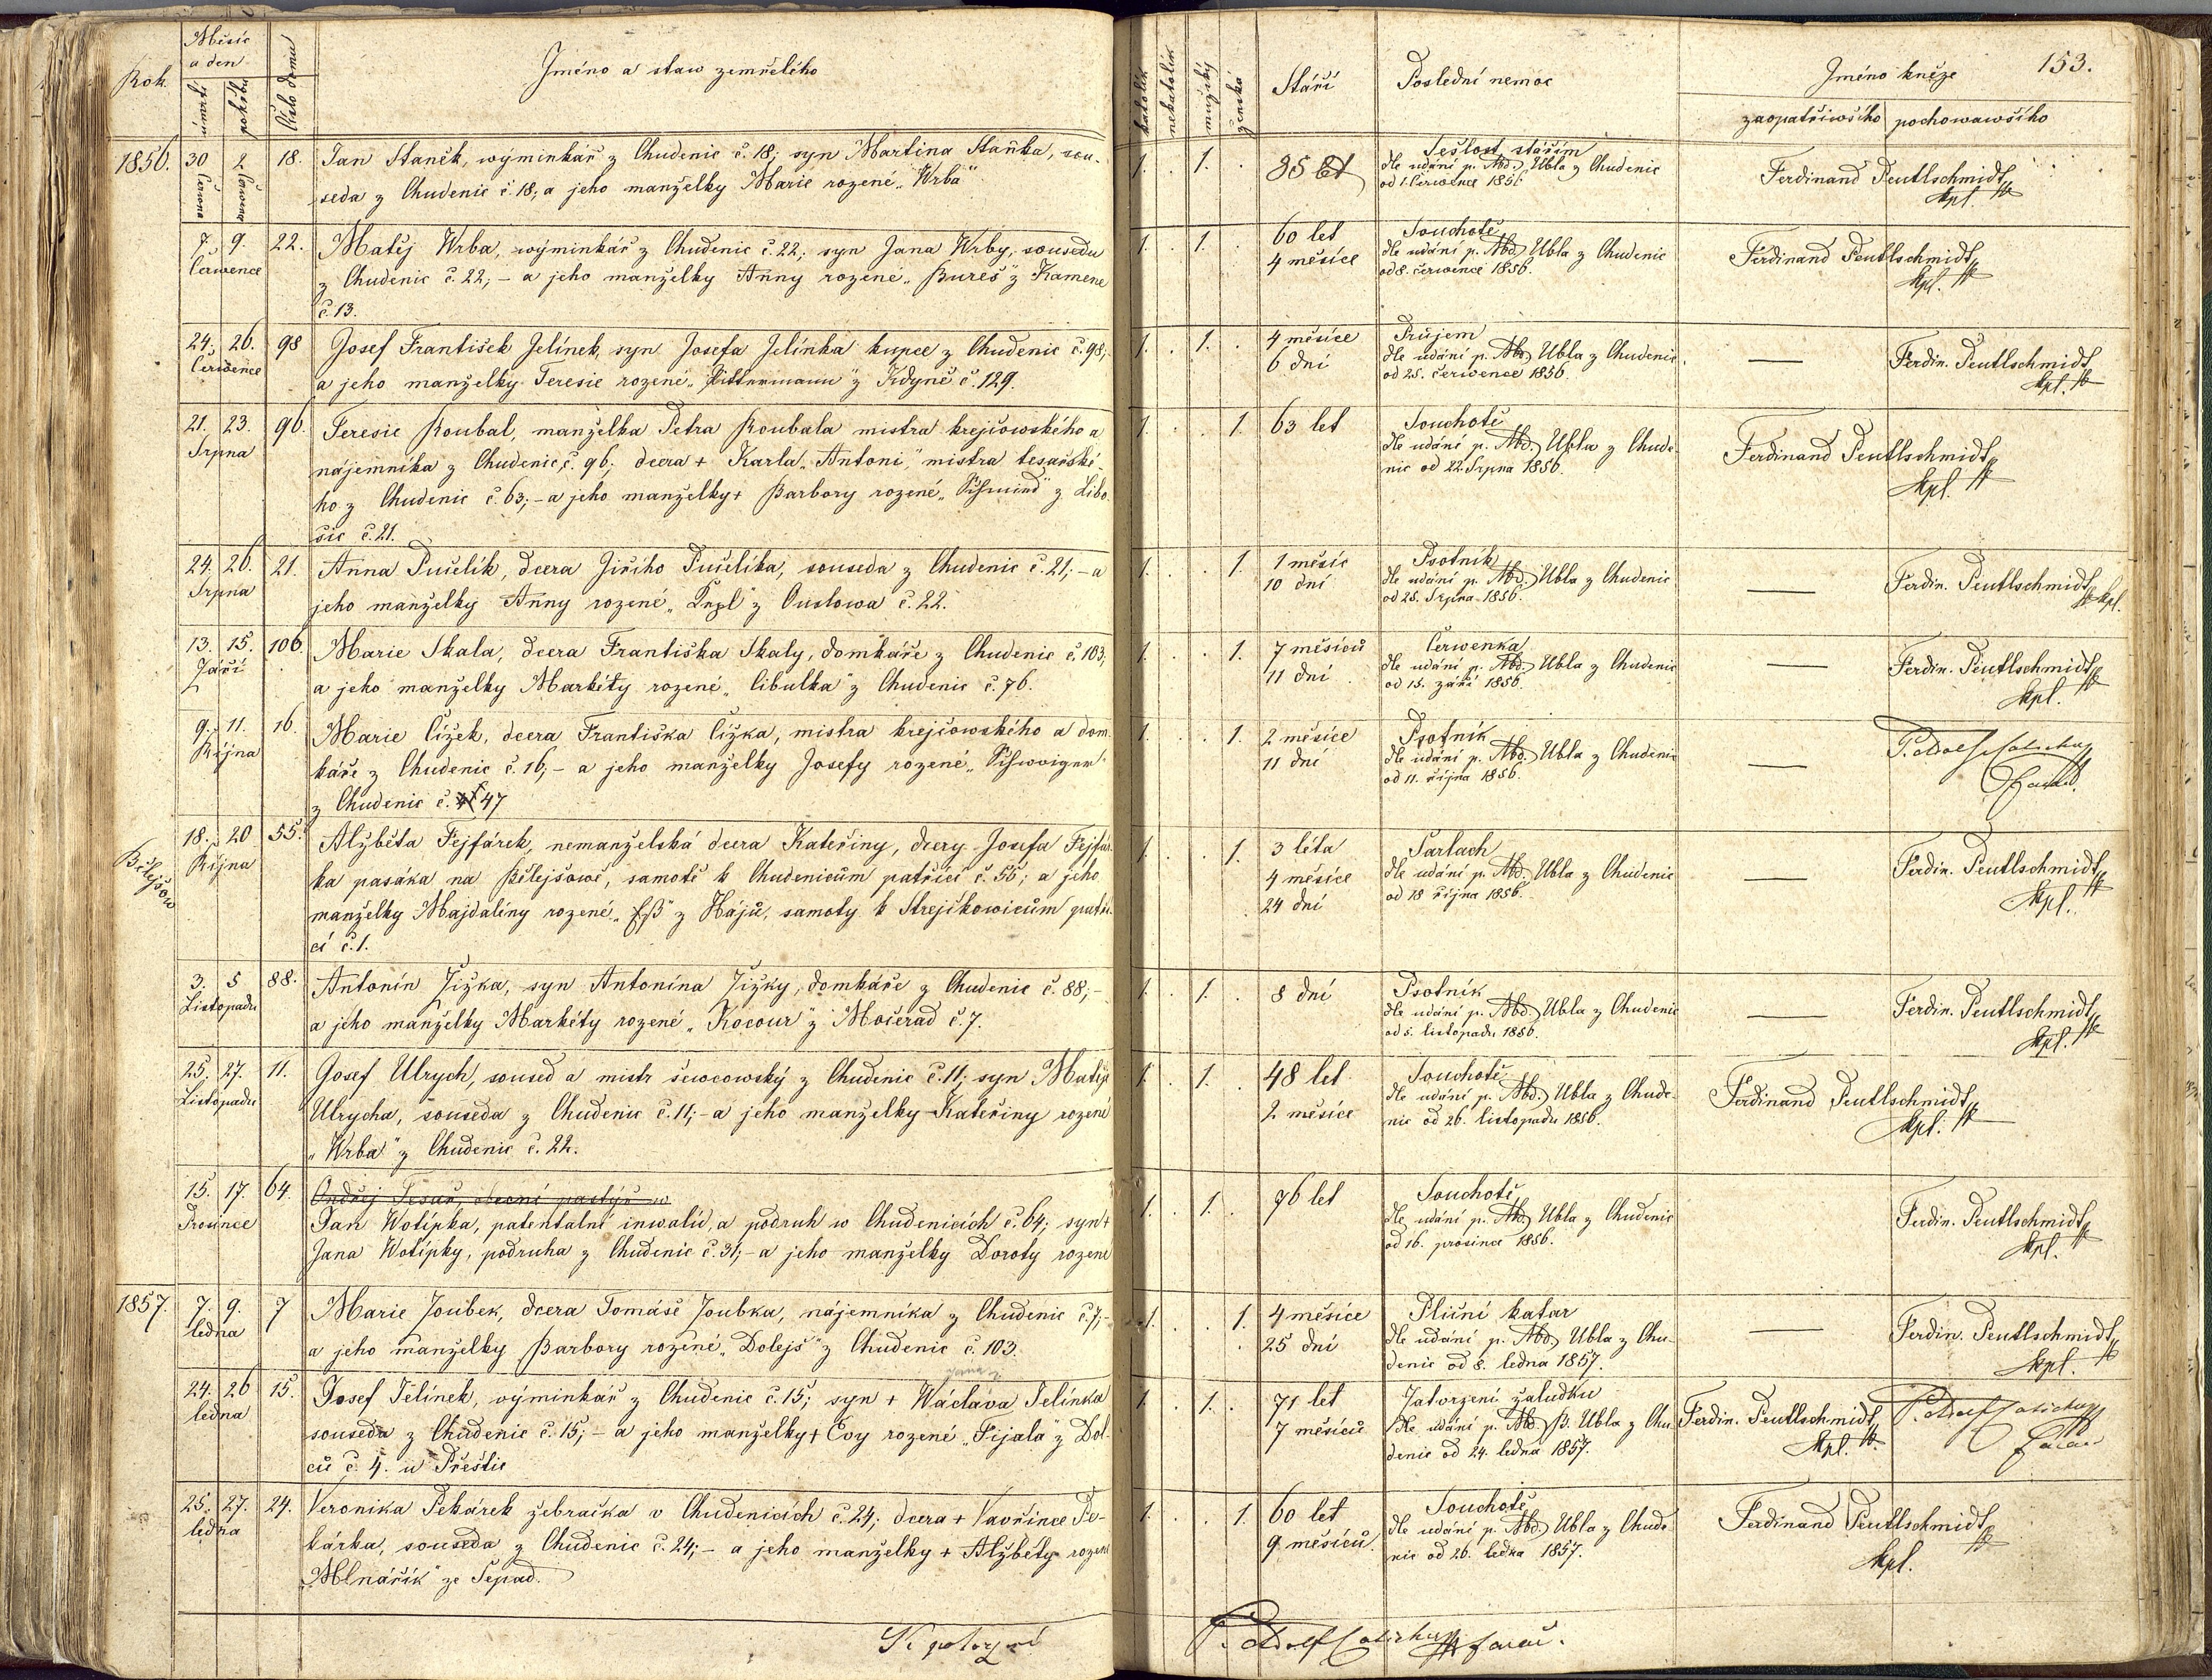 Rok
Měsíc
a den
úmrtí
pohřbu
Číslo domu
Jméno a staw zemřelého
1856.
30 2 18.
června
července
Jan Staněk, wýminkář z Chudenic č. 18; syn Martina Staňka, sou-
seda z Chudenic č. 18, a jeho manželky Marie rozené „Wrba"
7. 9. 22.
července
Matěj Wrba, wýminkář z Chudenic č. 22; syn Jana Wrby, souseda
z Chudenic č. 22; – a jeho manželky Anny rozené „Bureš" z Kamene
č. 13.
24. 26. 98
července
Josef František Jelínek, syn Josefa Jelínka kupce z Chudenic č. 98;
a jeho manželky Teresie rozené z Kdyně č. 129.
21. 23. 96.
Srpna
Teresie Roubal, manželka Petra Roubala mistra krejčowského a
nájemníka z Chudenic č. 96; dcera + Karla „Antoni," mistra tesařské-
ho z Chudenic č. 63; – a jeho manželky + Barbory rozené z Libo
šic č. 21.
24. 26. 21.
Srpna
Anna Pušelík, dcera Jiřího Pušelíka, souseda z Chudenic č. 21; – a
jeho manželky Anny rozené z Ouslowa č. 22.
13. 15. 106
Září
Marie Skala, dcera Františka Skaly, domkáře z Chudenic č. 103,
a jeho manželky Markéty rozené „Cibulka" z Chudenic č. 76.
9. 11. 16.
Října
Marie Čížek, dcera Františka Čížka, mistra krejčowského a dom
káře z Chudenic č. 16; – a jeho manželky Josefy rozené
z Chudenic č. 47
Bělejšow
18. 20 55.
Října
Alžběta Fejfárek, nemanželská dcera Kateřiny, dcery Josefa Fejfár
ka pasáka na Bělejšowě, samotě k Chudenicům patřící č. 55; a jeho
manželky Majdalíny rozené z Hájů, samoty k Strejčkowicům patří
cí č. 1.
3. 5 88.
Listopadu
Antonín Žižka, syn Antonína Žižky, domkáře z Chudenic č. 88; –
a jeho manželky Markéty rozené „Kocour" z Močerad č. 7.
25. 27. 11.
Listopadu
Josef Ulrych, soused a mistr šewcowský z Chudenic č. 11; syn Matěje
Ulrycha, souseda z Chudenic č. 11; – a jeho manželky Kateřiny rozené
„Wrba" z Chudenic č. 22.
15. 17. 64.
Prosince
Ondřej Tesař, obecní pastýř w
Jan Wotípka, patentalní inwalid, a podruh w Chudenicích č. 64; syn +
Jana Wotípky, podruha z Chudenic č. 31; – a jeho manželky Doroty rozené
1857. 7. 9. 7
ledna
Marie Joubek, dcera Tomáše Joubka, nájemníka z Chudenic č. 7; –
a jeho manželky Barbory rozené „Dolejš" z Chudenic č. 103.
24. 26 15.
ledna
Josef Jelínek, výminkář z Chudenic č. 15; syn + Wácława Jelínka
souseda z Chudenic č. 15; – a jeho manželky + Evy rozené „Fijala" z Dol-
ců č. 4. u Přeštic
25. 27. 24.
ledna
Veronika Pekárek žebračka v Chudenicích č. 24; dcera + Vavřince Pe-
kárka, souseda z Chudenic č. 24; – a jeho manželky + Alžběty rozené
„Mlnářík" ze Sepad.
katolík
nekatolík
mužský
ženská
Stáří
Poslední nemoc
Jméno kněze
153.
zaopatřiwšího
pochowawšího
1. . 1. .
85 let
Sešlost stářím
dle udání p. Mbd. Ubla z Chudenic
od 1. července 1856
Ferdinand Peutlschmidt
kpl.
1. 1. .
60 let
4 měsíce
Souchotě
dle udání p. Mbd. Ubla z Chudenic
od 8. července 1856.
Ferdinand Peutlschmidt
kpl.
1. . 1. .
4 měsíce
6 dní
Průjem
dle udání p. Mbd. Ubla z Chudenic
od 25. července 1856.
—
Ferdin. Peutlschmidt
kpl.
1. . . 1.
63 let
Souchotě
dle udání p. Mbd. Ubla z Chude-
nic od 22. Srpna 1856.
Ferdinand Peutlschmidt
kpl.
1. . . 1.
1 měsíc
10 dní
Psotník
dle udání p. Mbd. Ubla z Chudenic
od 25. Srpna 1856.
—
Ferdin. Peutlschmidt
kpl.
1. . . 1.
7 měsíců
11 dní
Červenka
dle udání p. Mbd. Ubla z Chudenic
od 15. září 1856.
—
Ferdin. Peutlschmidt
kpl.
1. . . 1.
2 měsíce
11 dní
Psotník
dle udání p. Mbd. Ubla z Chudenic
od 11. října 1856.
—
P. Adolf
1. . . 1.
3 léta
4 měsíce
24 dní
Šarlach
dle udání p. Mbd. Ubla z Chudenic
od 18 října 1856.
—
Ferdin. Peutlschmidt
kpl.
1. . 1. .
8 dní
Psotník
dle udání p. Mbd. Ubla z Chudenic
od 5. listopadu 1856.
—
Ferdin. Peutlschmidt
kpl.
1. . 1. .
48 let
2 měsíce
Souchotě
dle udání p. Mbd. Ubla z Chude-
nic od 26. listopadu 1856.
Ferdinand Peutlschmidt
kpl.
1. . 1. .
76 let
Souchotě
dle udání p. Mbd. Ubla z Chudenic
od 16. prosince 1856.
Ferdin. Peutlschmidt
kpl.
1. . . 1.
4 měsíce
25 dní
Plicní katar
dle udání p. Mbd. Ubla z Chu-
denic od 8. ledna 1857.
—
Ferdin. Peutlschmidt
kpl.
1. . 1. .
71 let
7 měsíců
Zatvrzení žaludku
dle udání p. Mbd. B. Ubla z Chu-
denic od 24. ledna 1857.
Ferdin. Peutlschmidt
kpl.
P. Adolf
farář
1. . . 1.
60 let
9 měsíců.
Souchotě
dle udání p. Mbd. Ubla z Chude-
nic od 26. ledna 1857.
Ferdinand Peutlschmidt
kpl.
P. Adolf farář.